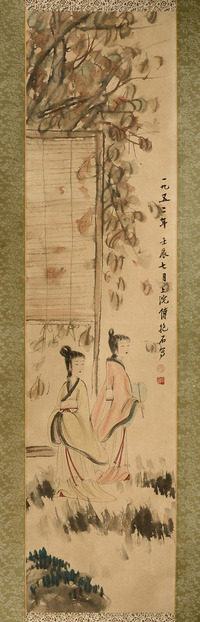 一九五二年 壬辰七月上浣傅抱石写